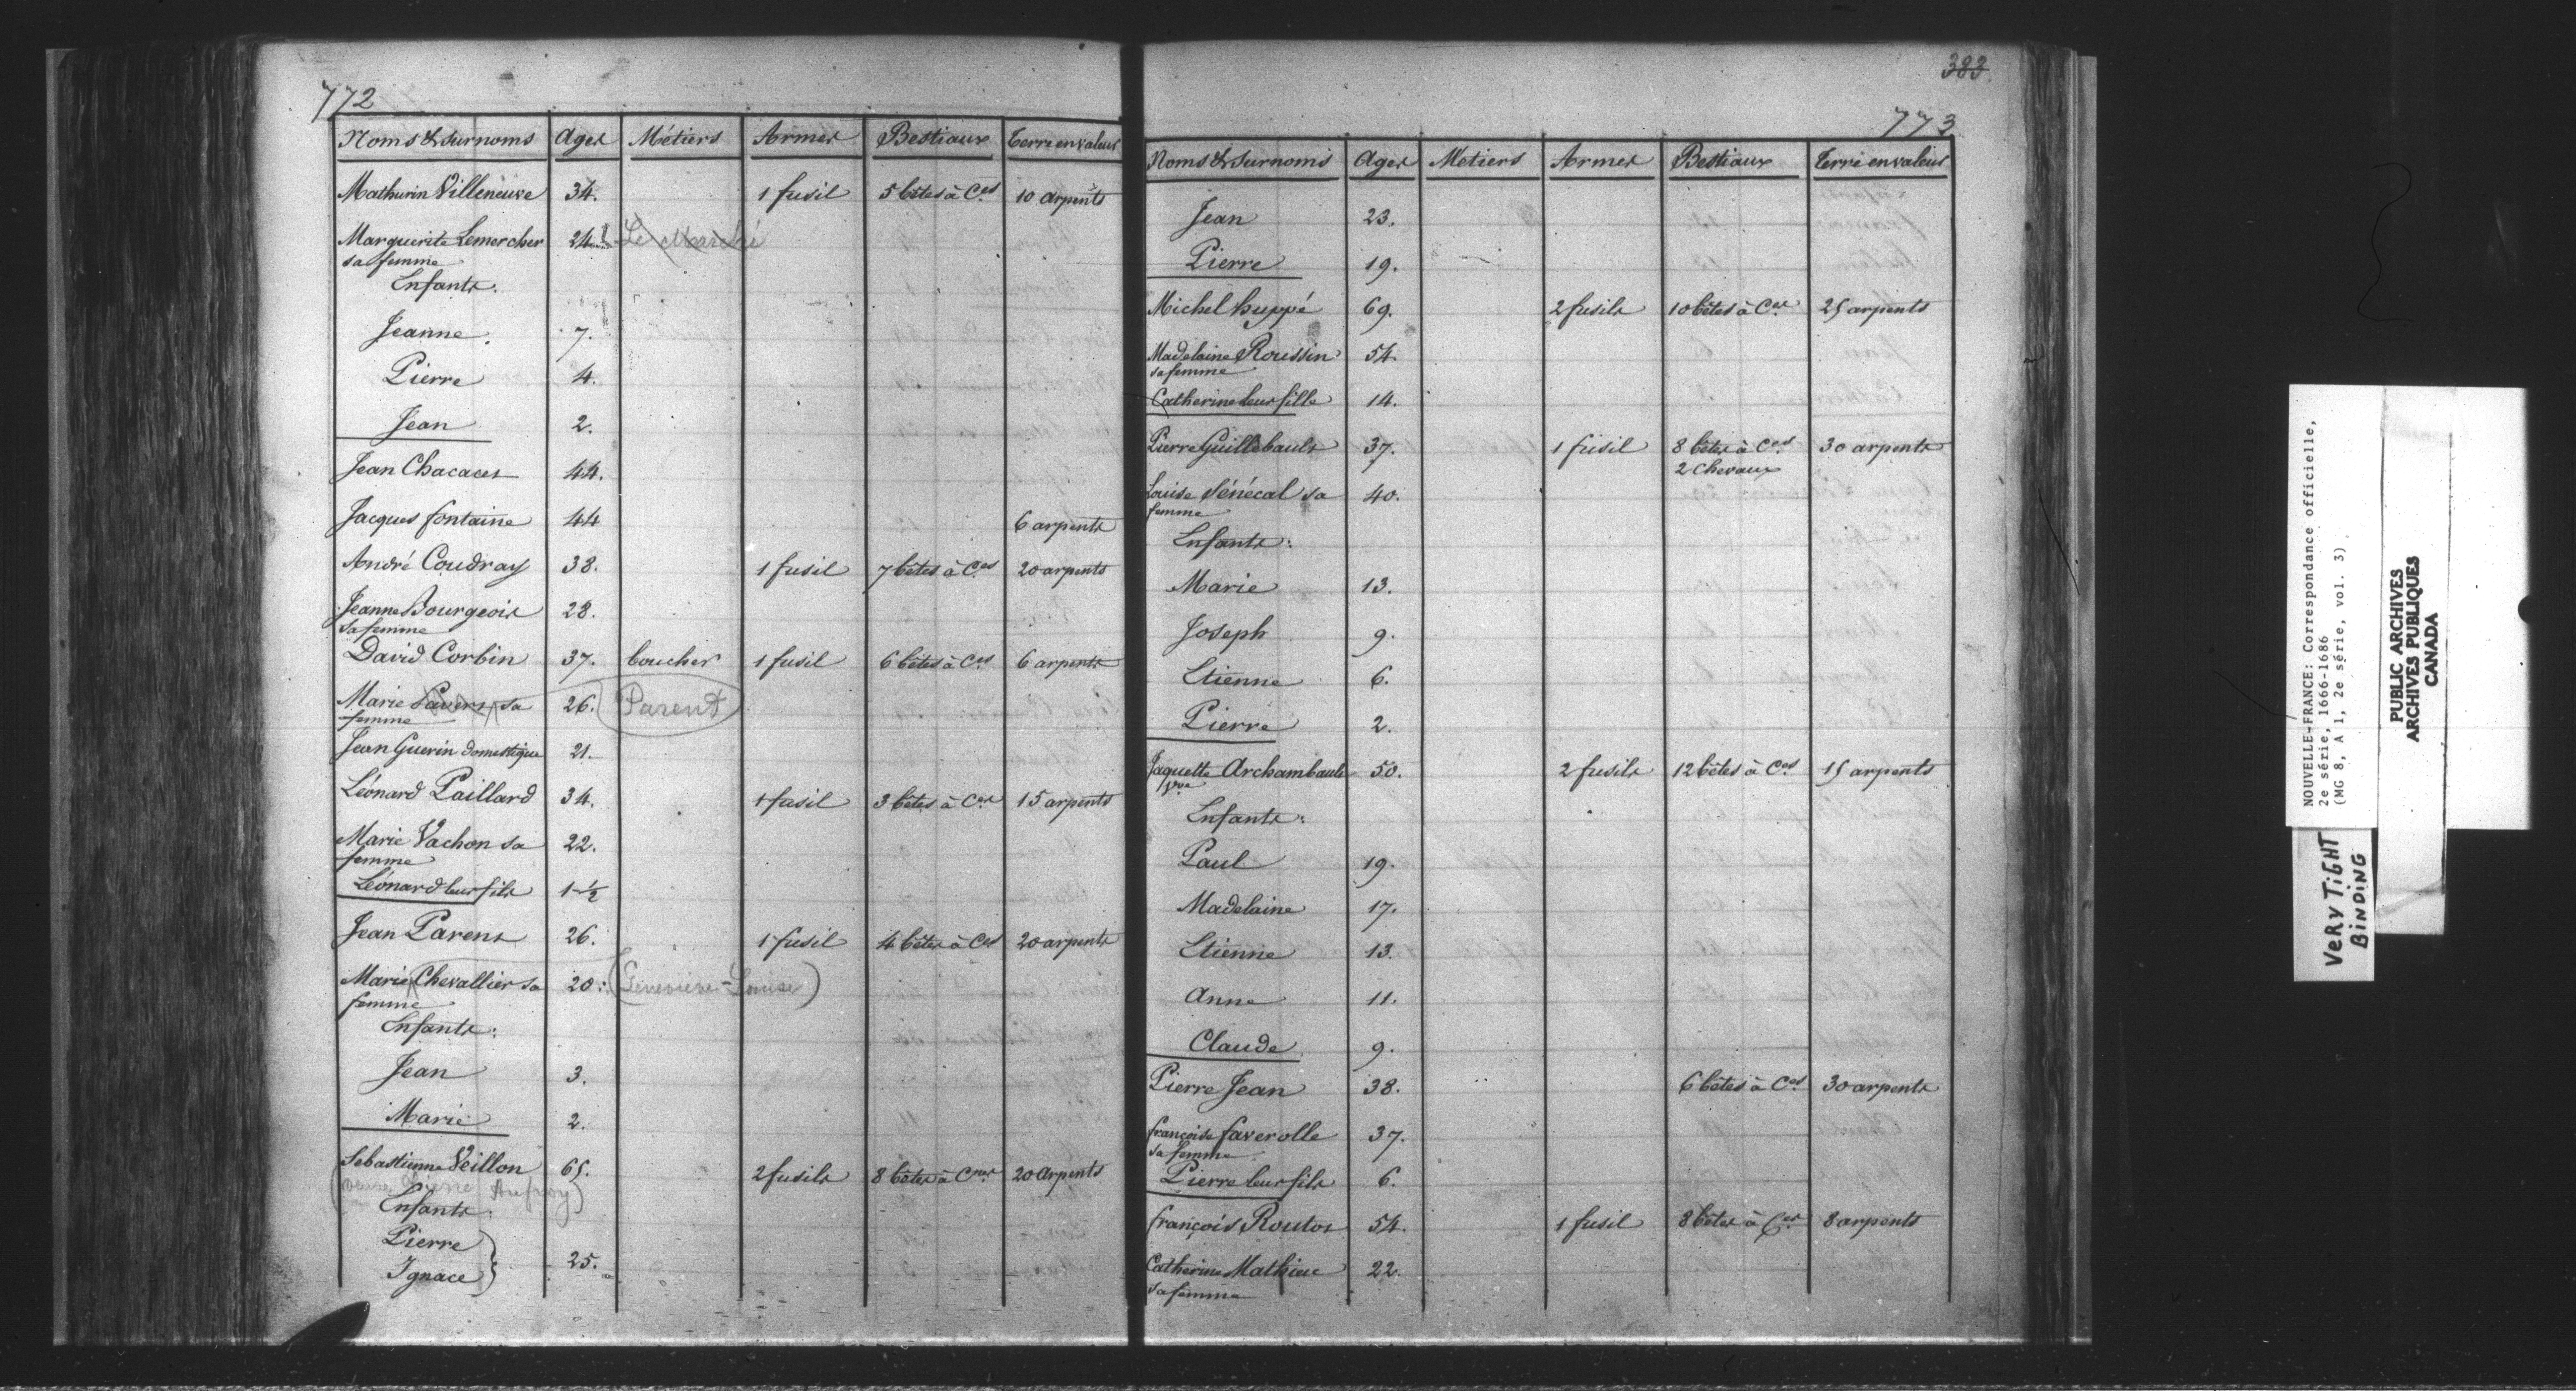 772
Noms & surnoms Ages Métiers Armes Bestiaux Terre en valeur
Mathurin Villeneuve 34. 1 fusil 5 bêtes à Ces 10 arpents
Marguerite Lemercher 24. Le Marché
sa femme
Enfants.
Jeanne. 7.
Pierre 4.
Jean 2.
Jean Chacaces 44.
Jacques fontaine 44 6 arpents
André Coudray 38. 1 fusil 7 bêtes à Ces 20 arpents
Jeanne Bourgeois 28.
sa femme
David Corbin 37. boucher 1 fusil 6 bêtes à Ces 6 arpents
Marie sa 26. (Parent)
femme
Jean Guerin domestique 21.
Léonard Paillard 34. 1 fusil 3 bêtes à Ces 15 arpents
Marie Vachon sa 22.
femme
Léonard leur fils 1 1/2
Jean Parent 26. 1 fusil 4 bêtes à Ces 20 arpents
Marie Chevallier sa 20. (Geneviève-Louise)
femme
Enfants:
Jean 3.
Marie 2.
Sebastienne Veillon 65. 2 fusils 8 bêtes à Cnes 20 Arpents
(veuve Pierre Aufroy)
Enfants:
Pierre
Ignace } 25.
383
773
Noms & surnoms Ages Métiers Armes Bestiaux Terre en valeur
Jean 23.
Pierre 19.
Michel huppé 69. 2 fusils 10 bêtes à Ces 25 arpents
Madelaine Roussin 54.
sa femme
Catherine leur fille 14.
Pierre Guillebault 37. 1 fusil 8 bêtes à Ces 30 arpents
2 Chevaux
Louise Sénécal sa 40.
femme
Enfants:
Marie 13.
Joseph 9.
Etienne 6.
Pierre 2.
Jaquette Archambault 50. 2 fusils 12 bêtes à Ces 15 arpents
Vve
Enfants:
Paul 19.
Madelaine 17.
Etienne 13.
Anne 11.
Claude 9.
Pierre Jean 38. 6 bêtes à Ces 30 arpents
françoise faverolle 37.
sa femme
Pierre leur fils 6.
françois Routos 54. 1 fusil 8 bêtes à Ces 8 arpents
Catherine Mathieu 22.
sa femme
NOUVELLE-FRANCE: Correspondance officielle,
2e série, 1666-1686
(MG 8, A 1, 2e série, vol. 3).
PUBLIC ARCHIVES
ARCHIVES PUBLIQUES
CANADA
VERY TIGHT
BINDING